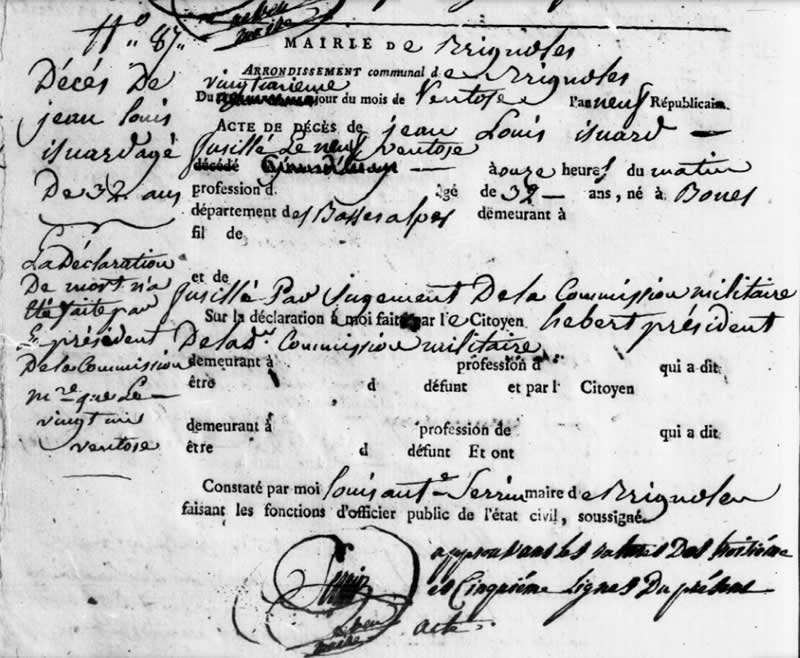 N° 87.
Décès De
jean louis
isnard agé
De 32 ans
La Déclaration
De mort n'a
Eté faite par
Le président
De la Commission
m.re que Le
vingt un
ventose
MAIRIE DE Brignoles
ARRONDISSEMENT communal de Brignoles
vingtunieme
Du jour du mois de Ventose l'an neuf Républicain
ACTE DE DÉCÈS de jean Louis isnard —
fusillé Le neuf ventose
décédé — à onze heures du matin
profession d. âgé de 32 — ans, né à
département des Basses alpes demeurant à
fil de
et de
fusillé Par jugement De la Commission militaire
Sur la déclaration à moi faite par le Citoyen hebert président
De lad.e Commission militaire
demeurant à profession d. qui a dit
être d défunt et par l Citoyen
demeurant à profession de qui a dit
être d défunt Et ont
Constaté par moi louis ant.e maire de Brignoles
faisant les fonctions d'officier public de l'état civil, soussigné
approuvant les ratures Des troisième
et Cinquième Lignes Du présent
acte.